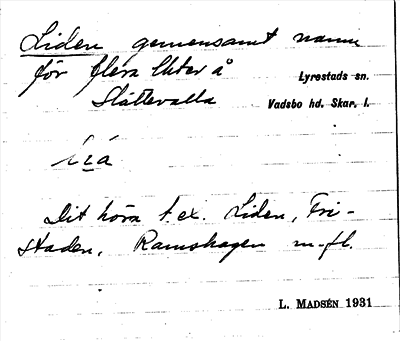 Liden gemensamt namn
för flera lider å Lyrestads sn.
Slättevalla Vadsbo hd. Skar. l.
Dit höra t. ex. Liden, Fri-
staden, Ramshagen m. fl.
L. MADSÉN 1931